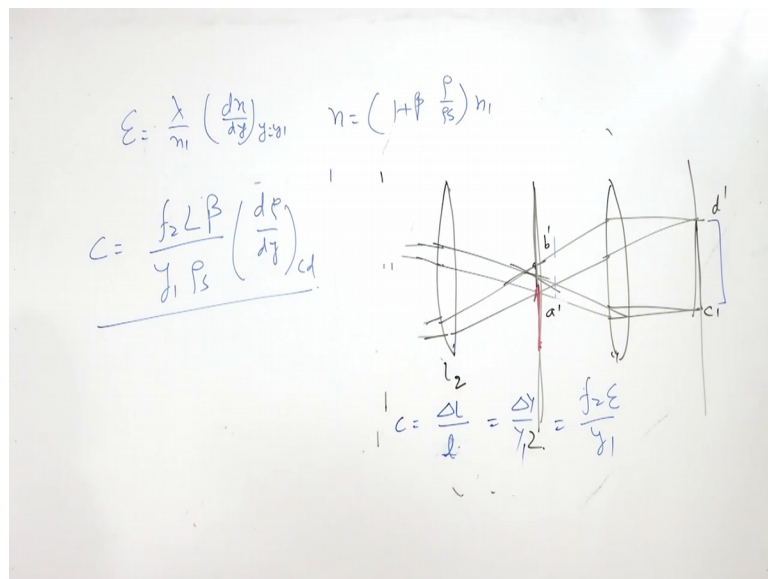 ε = λ/n₁ (dn/dy)y=y₁ n = (1+β ρ/ρs) n₁
C = f₂Lβ/y₁ρs (dρ/dy)cd
d'
b'
a'
c₁
L₂
C = ΔI/I = ΔY/Y₁ = f₂ε/y₁
2